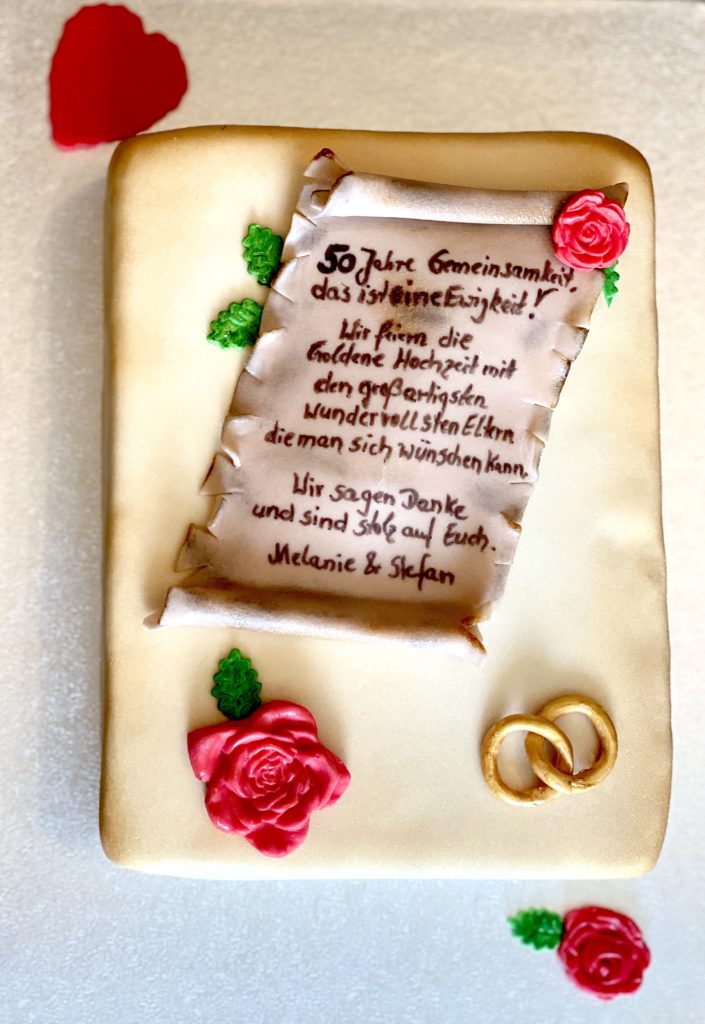 50 Jahre Gemeinsamkeit,
das ist eine Ewigkeit!
Wir feiern die
Goldene Hochzeit mit
den großartigsten
wundervollsten Eltern
die man sich wünschen kann.
Wir sagen Danke
und sind stolz auf Euch.
Melanie & Stefan